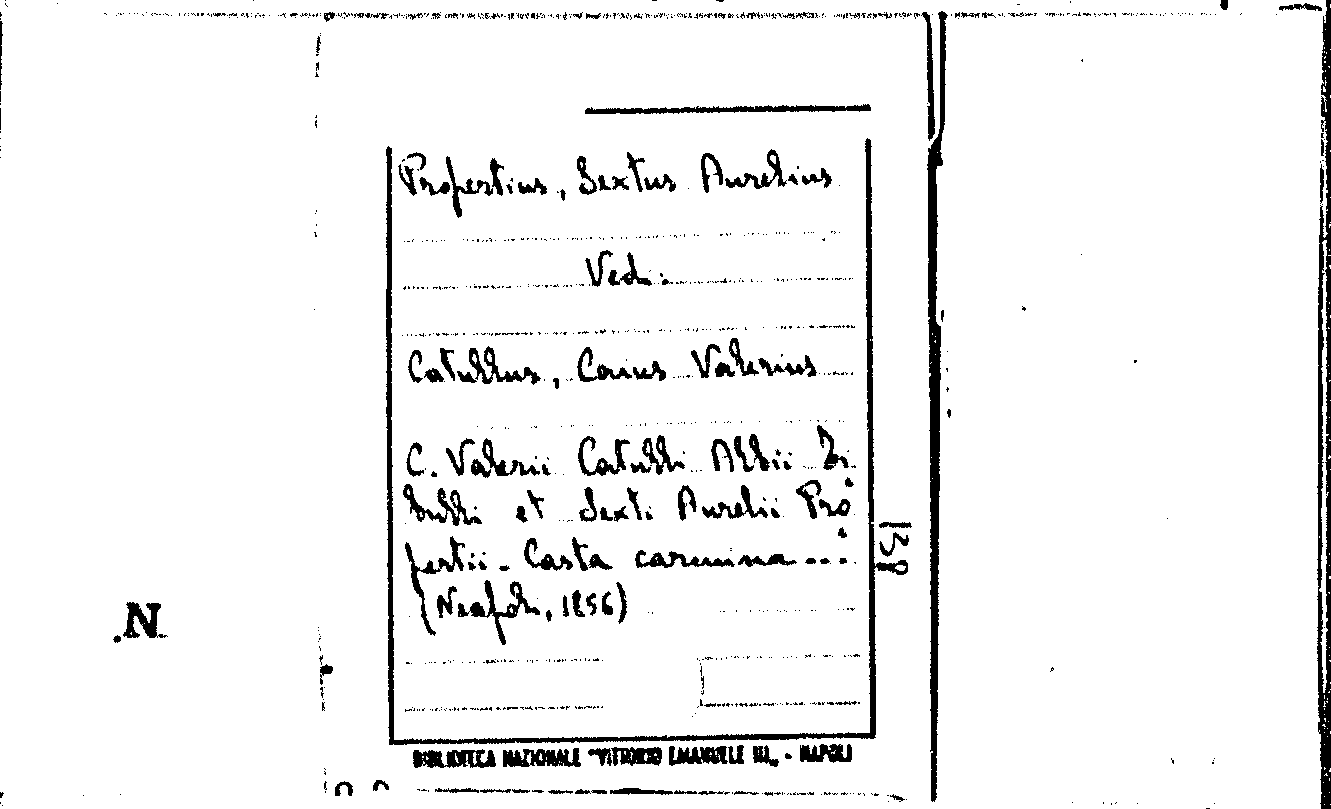 Propertius, Sextus Aurelius
Vedi:
Catullus, Caius Valerius
C. Valerii Catulli Albii Ti
bulli et Sexti Aurelii Pro
pertii - Casta carmina ...
(Neapoli, 1856)
138
.N.
BIBLIOTECA NAZIONALE "VITTORIO EMANUELE III„ - NAPOLI